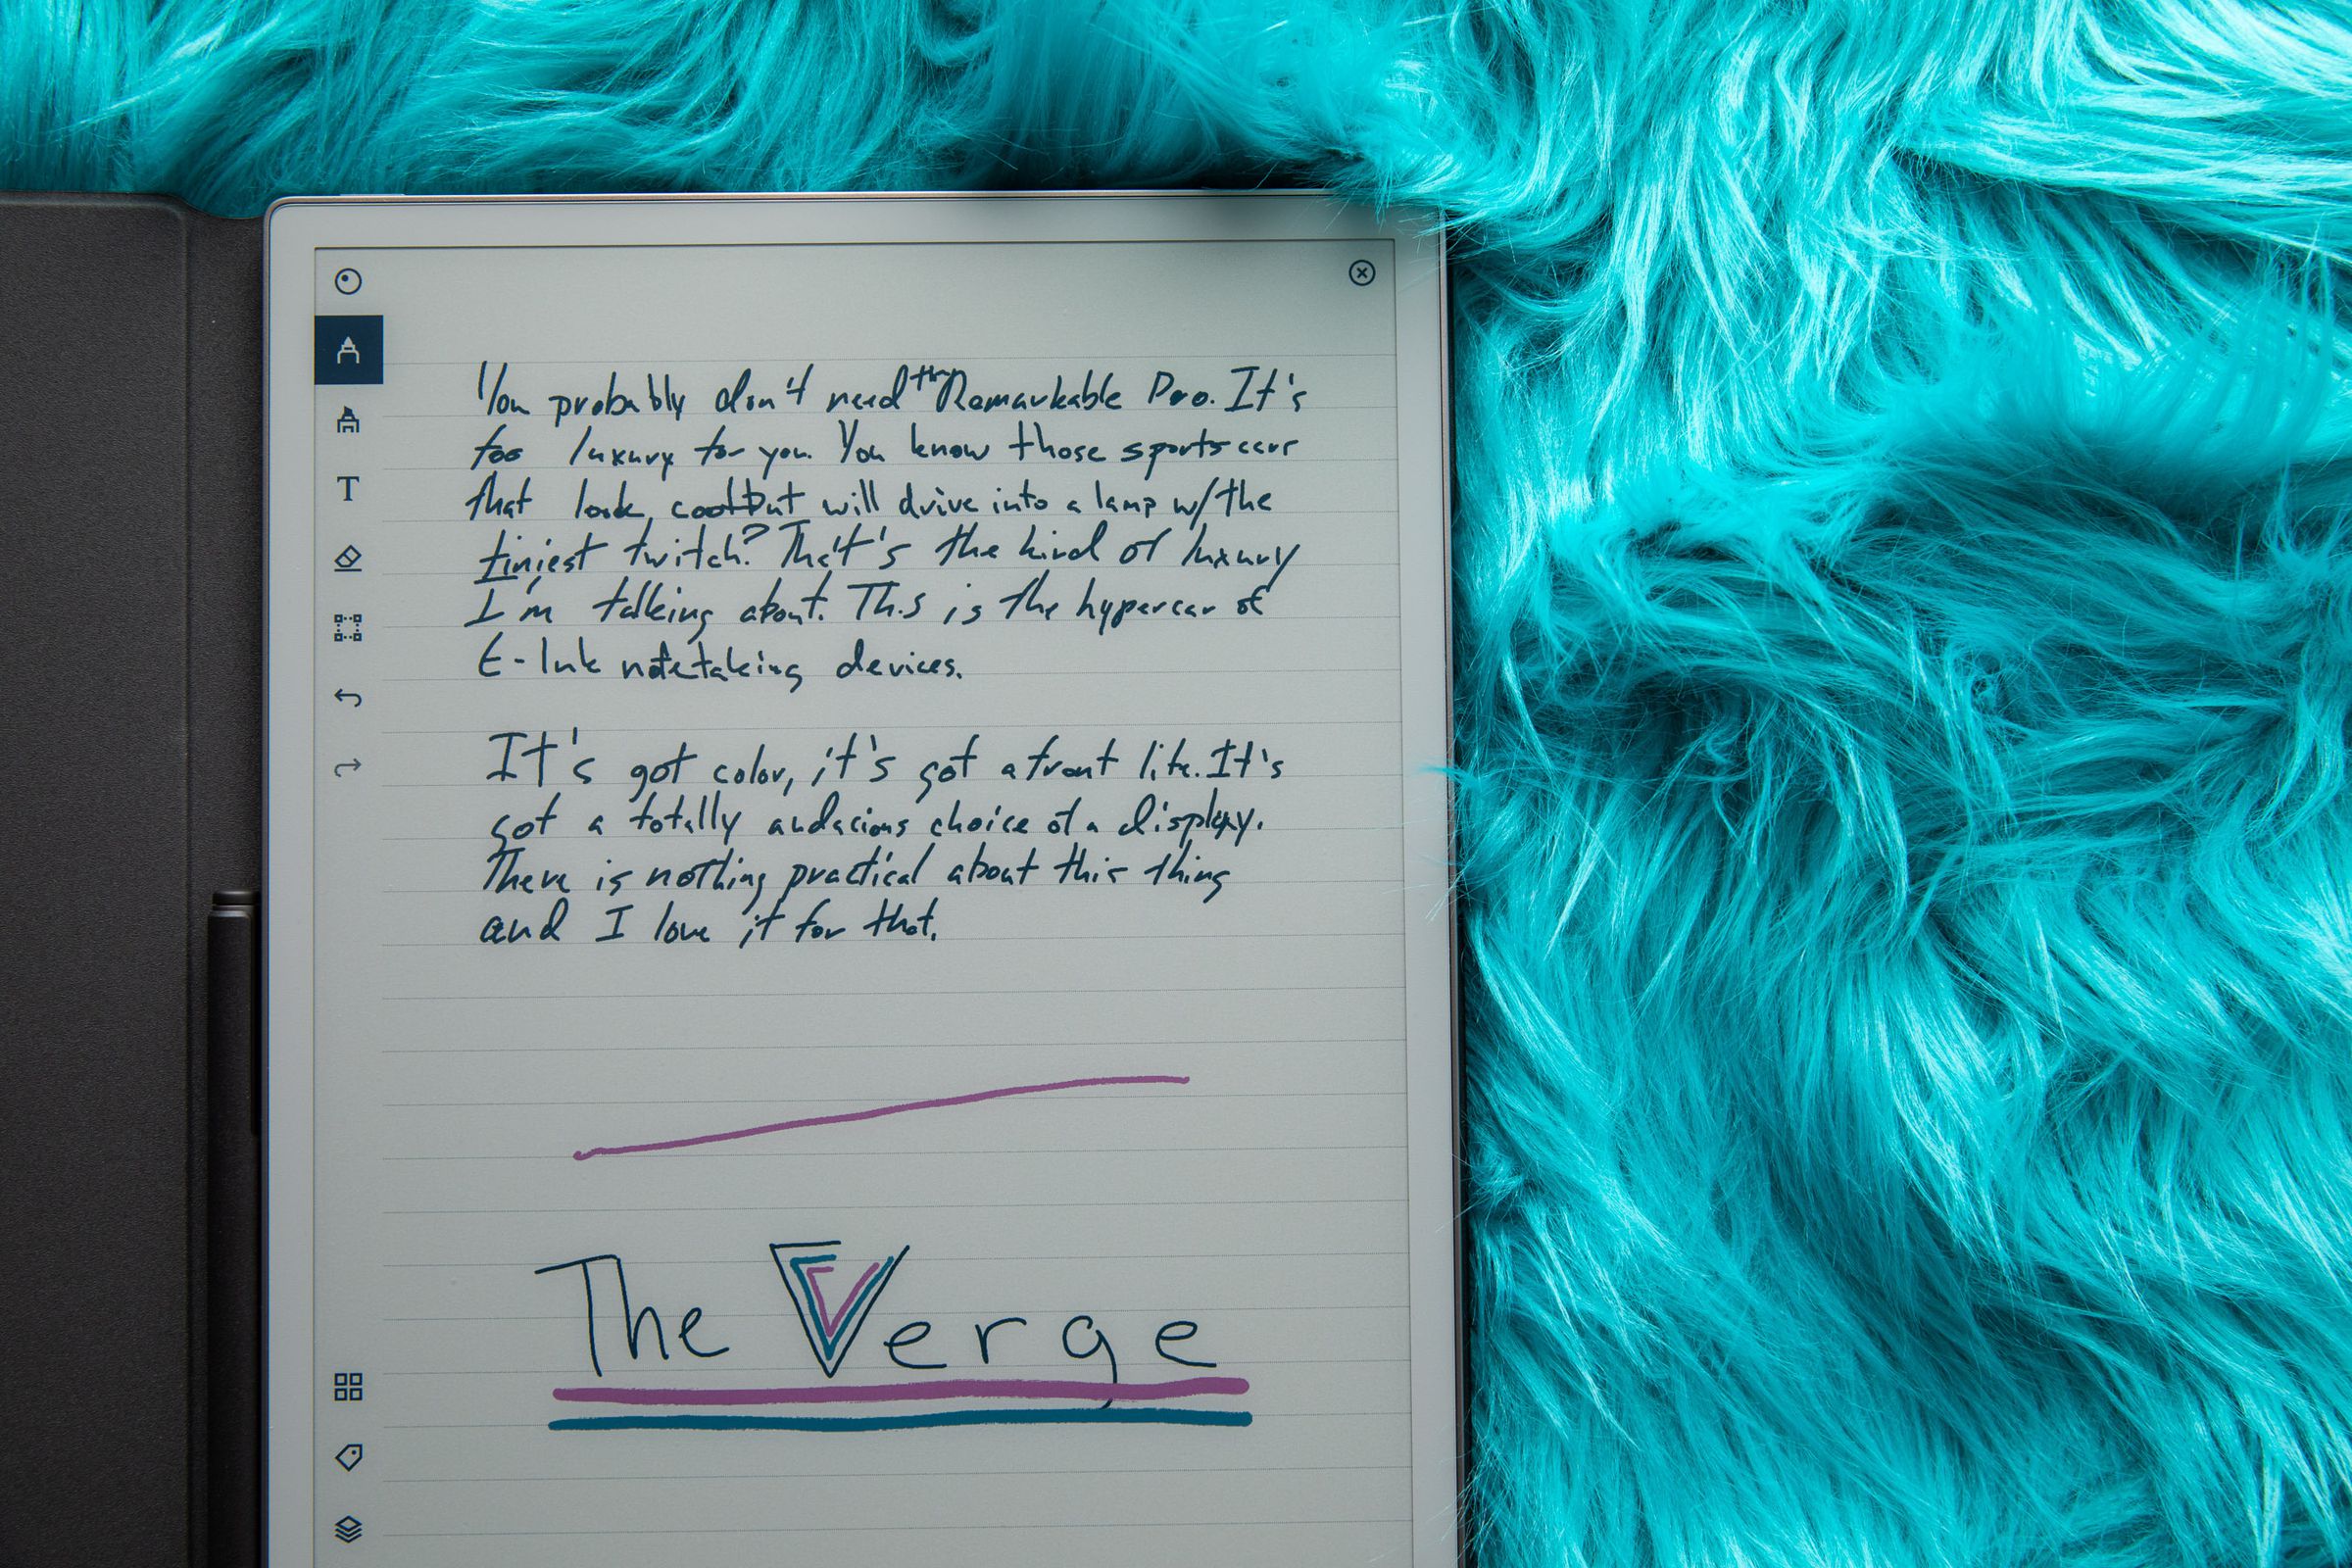 You probably don't need the Remarkable Pro. It's
too luxury for you. You know those sports cars
that look cool but will drive into a lamp w/ the
tiniest twitch? That's the kind of luxury
I'm talking about. This is the hypercar of
E-Ink notetaking devices.
It's got color, it's got a front lite. It's
got a totally audacious choice of a display.
There is nothing practical about this thing
and I love it for that.
The Verge
T